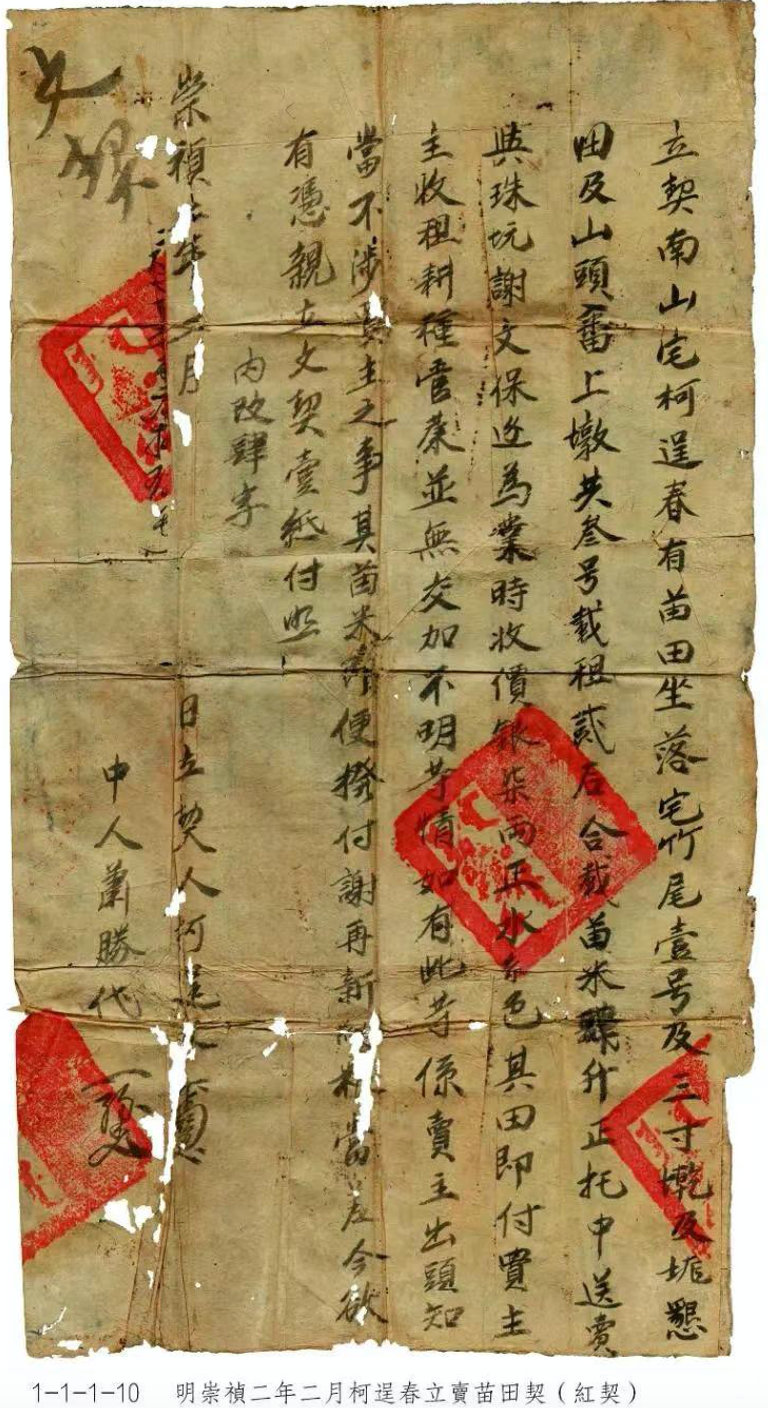 立契南山宅柯逞春有苗田坐落宅竹尾壹号及三寸墘及垢懇
田及山頭畬上墩共叁号載租貳石合載苗米肆升正托中送賣
與珠坑謝文保近為業時收價銀柒兩正水糸色其田即付買主
主收租耕種管業並無交加不明等情如有此等係賣主出頭知
當不涉買主之事其苗米即便撥付謝再新 糧當差今欲
有憑親立文契壹紙付照
內改肆字
崇禎二年二月 日立契人柯逞春
中人蕭勝代
文契
1-1-1-10 明崇禎二年二月柯逞春立賣苗田契（紅契）